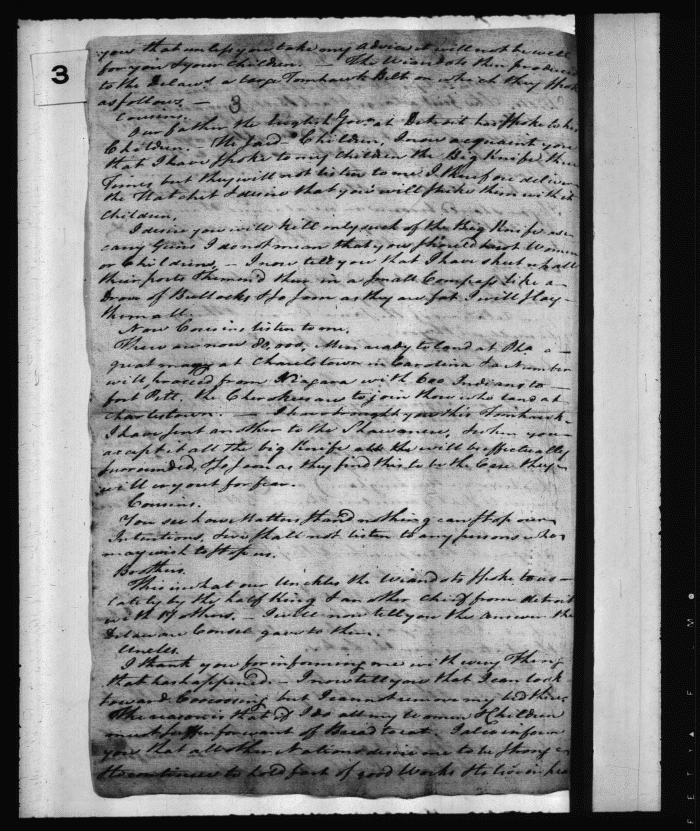 3
you that unless you take my advice it will not be well
for you & your Children. — The Wiandots then produced
to the Delaws a large Tomhawk Belt on which they spoke
as follows —
3
Cousins.
Our father the English Govr at Detroit has spoke to his
Children. — He said Children, I now acquaint you
that I have spoke to my Children the Big Knife three
Times but they will not listen to me I therefore deliver
the Hatchet & desire that you will strike them with it
Children,
I desire you will kill only such of the Big Knife as
carry Guns I do not mean that you should hurt Women
or Childrens, — I now tell you that I have shut up all
their ports & hem'd them in a small Compass like a
Drove of Bullocks & so soon as they are fat I will slay
them all.
Now Cousins listen to me.
There are now 80,000, Men ready to land at
great many at Charelstown in Carolina & a Number
will proceed from Niagara with 600 Indians to
fort Pitt. the Cherokees are to join those who land at
Charlestown. — I have brought you this Tomhawk
I have sent another to the Shawanese, & when you
accept it all the big Knife will be effectually
surrounded, & so soon as they find this to be the Case they
will cry out for fear.
Cousins.
You see how Matters stand nothing can stop our
Intentions, & we shall not listen to any persons who
may wish to stop us.
Brothers.
This is what our Unckles the Wiandots spoke to us
lately by the half King & another Chief from detroit
with 17 others. — I will now tell you the answer the
Delaware Counsel gave to them.
Uncles.
I thank you for informing me with every Thing
that has happened. — I now tell you that I can look
toward but I cannot remove my bed there
The reason is that if I do all my Women & Children
must suffer for want of Bread to eat. I also inform
you that all other Nations desire me to be strong &
to continue to hold fast of good Works